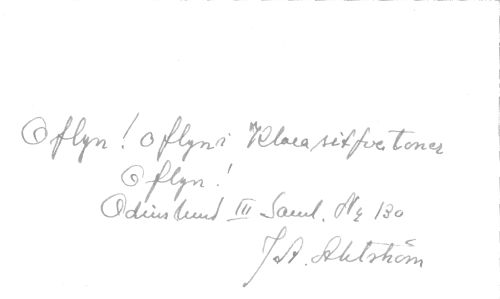 O flyn! O flyn i Klara sitfvertoner
O flyn!
Odinslund III Saml. No 130
J. A. Ahlström